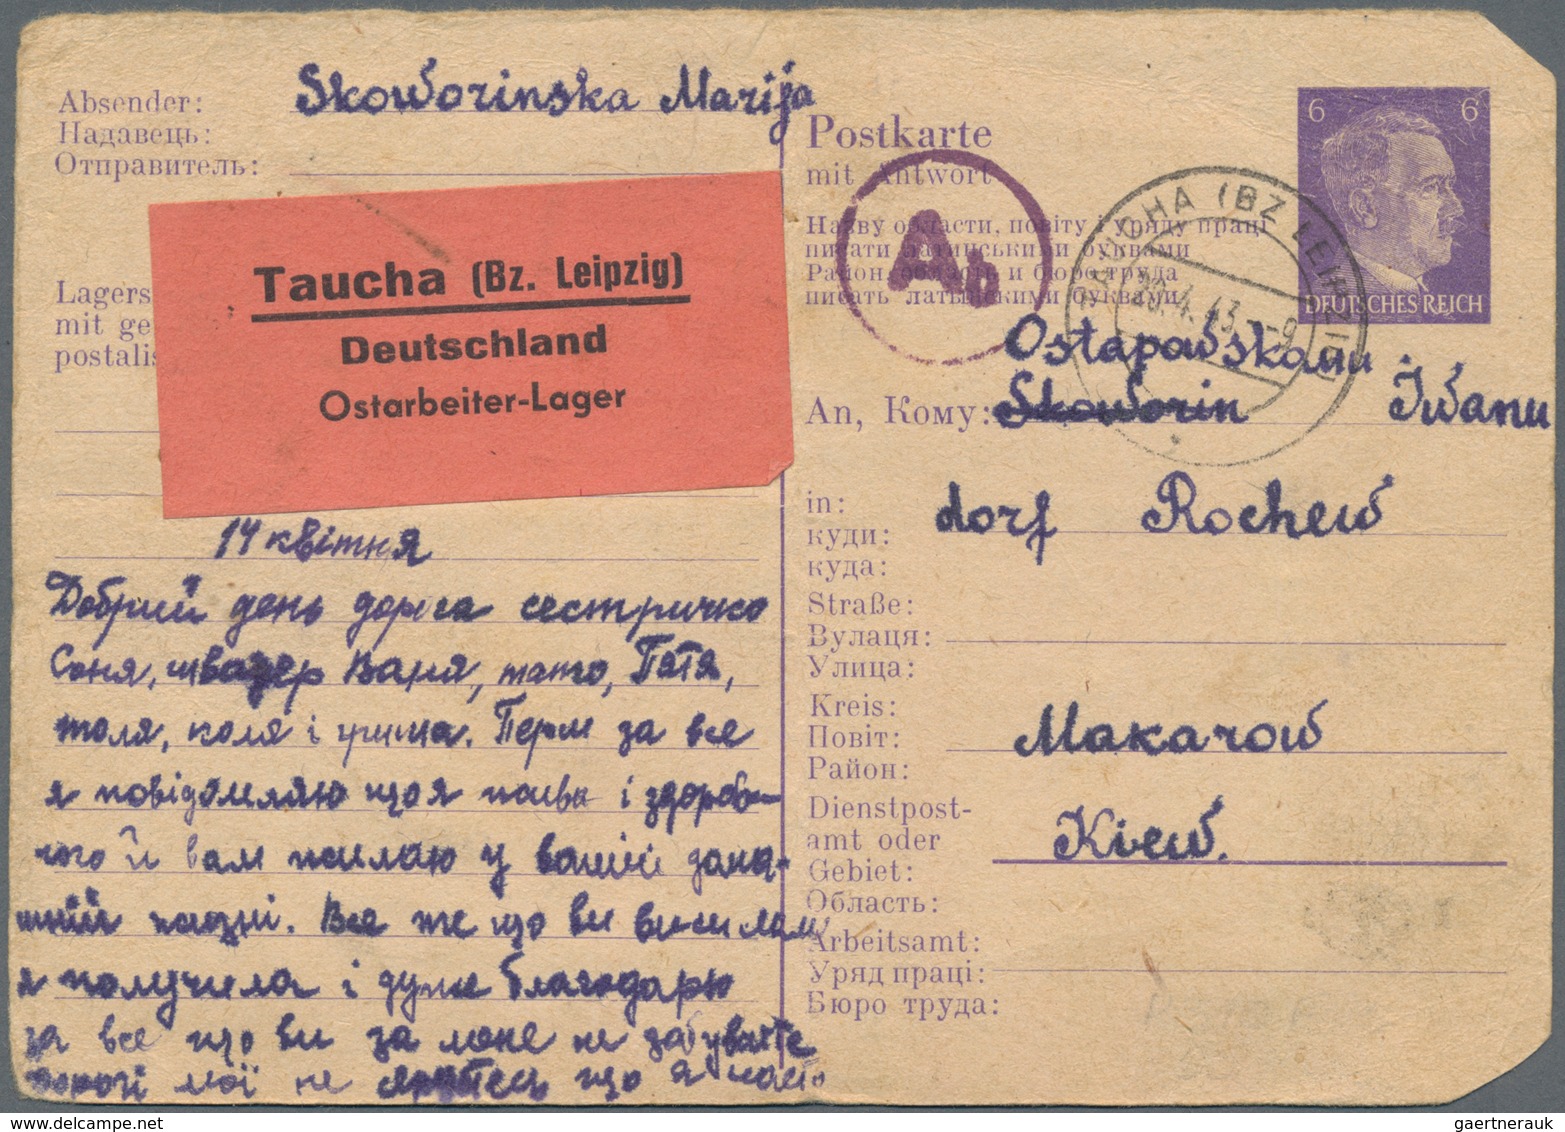 Absender: Skoworinska Marija
Надавець:
Отправитель:
Taucha (Bz. Leipzig)
Deutschland
Ostarbeiter-Lager
Lagers
mit ge
postalis
14 квітня
Добрий день дорога сестричко
Соня, швагер Ваня, тато, Петя,
толя, коля і гриша. Перш за все
я повідомляю що я жива і здорова
чого й вам желаю у вашій
жизні. Все те що ви висилали
я получила і дуже благодарю
за все що ви за мене не забуваєте
дорогі мої не що я
Postkarte
mit Antwort
Назву области, повіту і уряду праці
писати латинськими буквами
Район, область и бюро труда
писать латынскими буквами
Ab
TAUCHA (BZ LEIPZIG)
4.43.--9
6 6
DEUTSCHES REICH
Ostapowskamu
An, Кому: Skoworin Iwanu
in: dorf Rochew
куди:
куда:
Straße:
Вулаця:
Улица:
Kreis: Makarow
Повіт:
Район:
Dienstpost-
amt oder Kiew.
Gebiet:
Область:
Arbeitsamt:
Уряд праці:
Бюро труда:
gaertnerauk @ www.delcampe.net